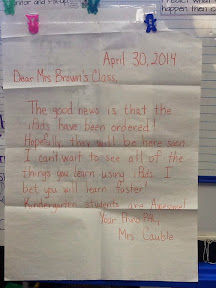 April 30, 2014
Dear Mrs Brown's Class,
The good news is that the
iPads have been ordered!
Hopefully they will be here soon
I cant wait to see all of the
things you learn using iPads. I
bet you will learn faster!
Kindergarten students are Awesome!
Your Pal,
Mrs.